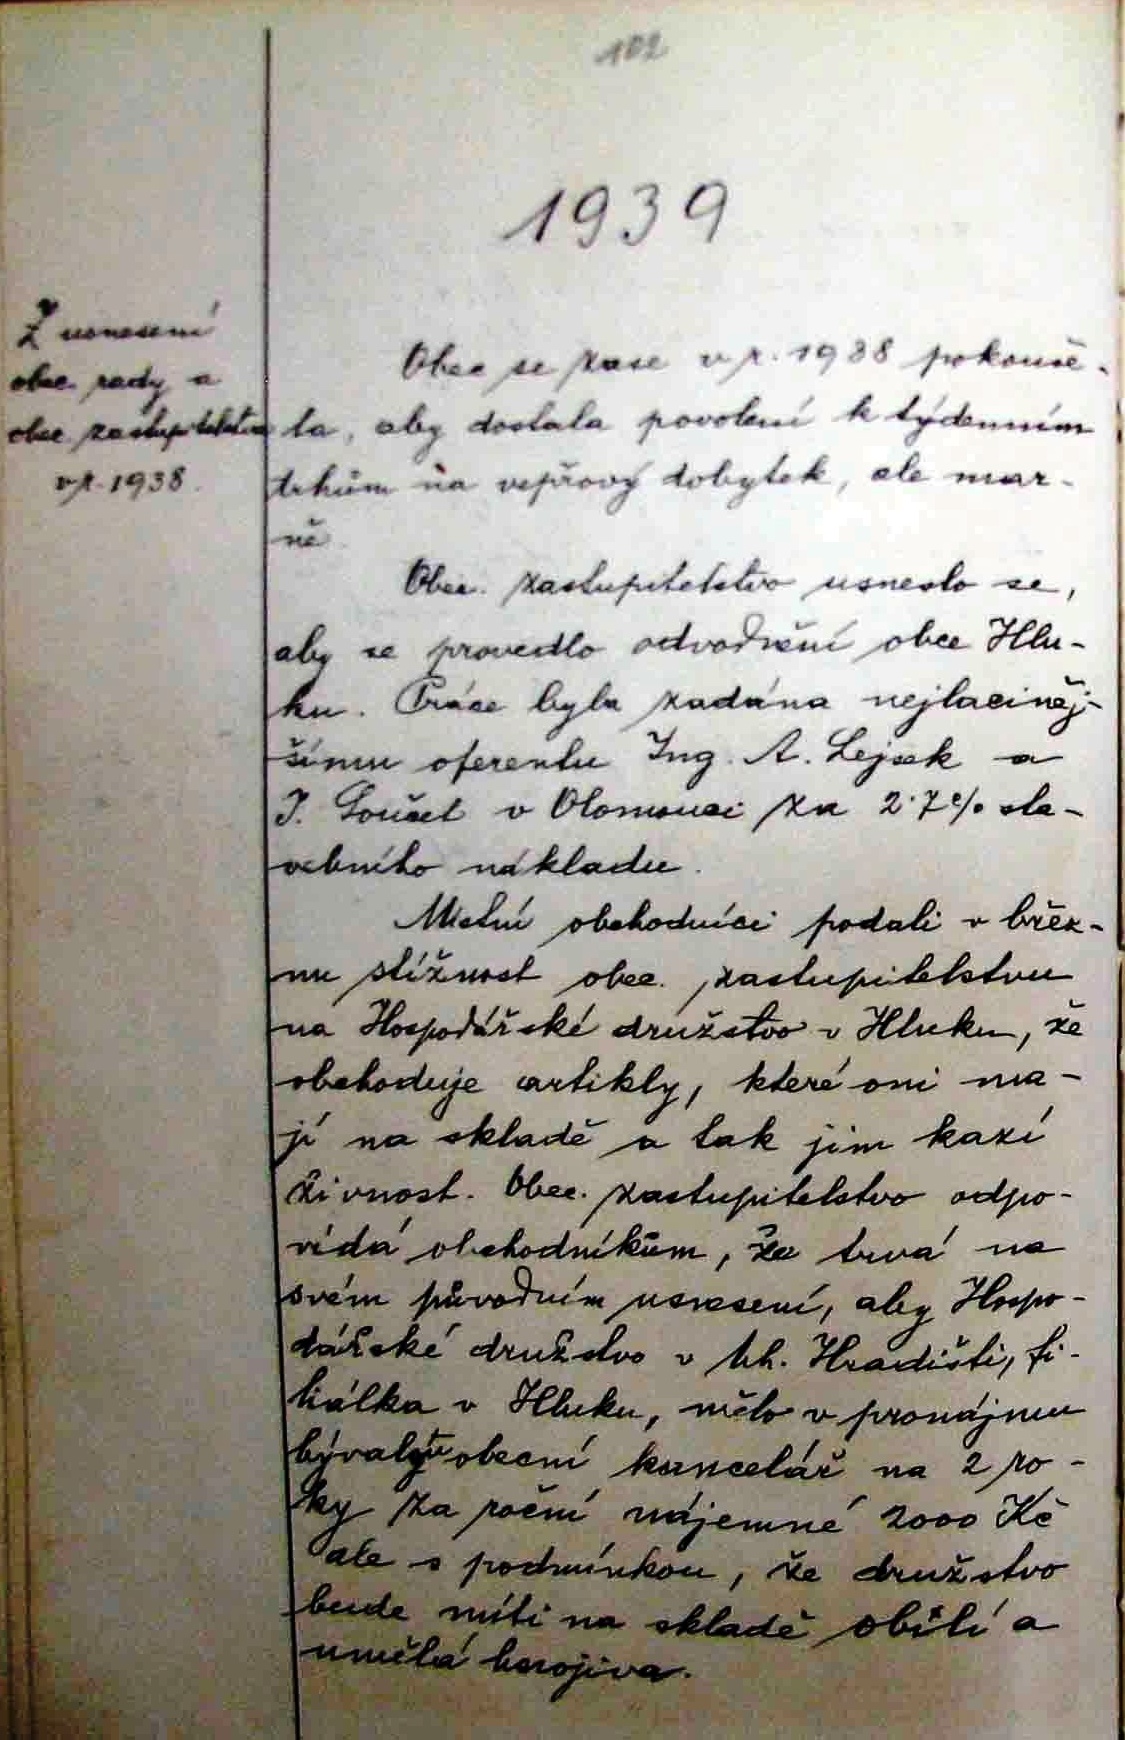 102
1939
Z usnesení
obec. rady a
obec. zastupitelstva
v r. 1938.
Obec se zase v r. 1938 pokouše-
la, aby dostala povolení k týdenním
trhům na vepřový dobytek, ale mar-
ně.
Obec. zastupitelstvo usneslo se,
aby se provedlo odvodnění obce Hlu-
ku. Práce byla zadána nejlaciněj-
šímu oferentu Ing. A. Lejsek a
J. Souček v Olomouci za 2.7% sta-
vebního nákladu.
Místní obchodníci podali v břez-
nu stížnost obec. zastupitelstvu
na Hospodářské družstvo v Hluku, že
obchoduje artikly, které oni ma-
jí na skladě a tak jim kazí
živnost. Obec. zastupitelstvo odpo-
vídá obchodníkům, že trvá na
svém původním usnesení, aby Hospo-
dářské družstvo v Uh. Hradišti, fi-
liálka v Hluku, mělo v pronájmu
bývalou obecní kancelář na 2 ro-
ky za roční nájemné 2000 Kč
ale s podmínkou, že družstvo
bude míti na skladě obilí a
umělá hnojiva.